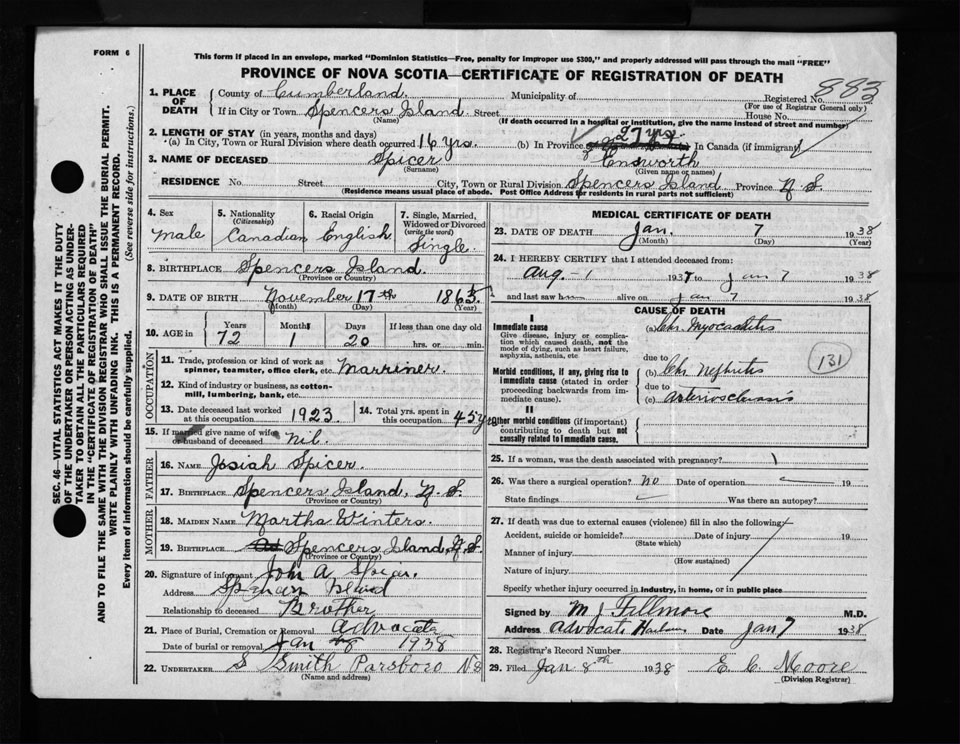 FORM 6
This form if placed in an envelope, marked "Dominion Statistics—Free, penalty for improper use $300," and properly addressed will pass through the mail "FREE"
PROVINCE OF NOVA SCOTIA—CERTIFICATE OF REGISTRATION OF DEATH
883
1. PLACE OF DEATH
County of Cumberland Municipality of Registered No.
(For use of Registrar General only)
If in City or Town Spencers Island Street House No.
(Name) (If death occurred in a hospital or institution, give the name instead of street and number)
2. LENGTH OF STAY (in years, months and days) 27 yrs.
(a) In City, Town or Rural Division where death occurred 16 yrs. (b) In Province In Canada (if immigrant)
3. NAME OF DECEASED Spicer Ensworth
(Surname) (Given name or names)
RESIDENCE No. Street City, Town or Rural Division Spencers Island Province N.S.
(Residence means usual place of abode. Post Office Address for residents in rural parts not sufficient)
SEC. 46—VITAL STATISTICS ACT MAKES IT THE DUTY
OF THE UNDERTAKER OR PERSON ACTING AS UNDER-
TAKER TO OBTAIN ALL THE PARTICULARS REQUIRED
IN THE "CERTIFICATE OF REGISTRATION OF DEATH"
AND TO FILE THE SAME WITH THE DIVISION REGISTRAR WHO SHALL ISSUE THE BURIAL PERMIT.
WRITE PLAINLY WITH UNFADING INK. THIS IS A PERMANENT RECORD.
Every item of information should be carefully supplied. (See reverse side for instructions.)
4. Sex
Male
5. Nationality
(Citizenship)
Canadian
6. Racial Origin
English
7. Single, Married,
Widowed or Divorced
(write the word)
Single
8. BIRTHPLACE Spencers Island.
(Province or Country)
9. DATE OF BIRTH November 17th 1865
(Month) (Day) (Year)
10. AGE in
Years Months Days If less than one day old
72 1 20 hrs. or min.
OCCUPATION
11. Trade, profession or kind of work as
spinner, teamster, office clerk, etc. Marriner.
12. Kind of industry or business, as cotton-
mill, lumbering, bank, etc.
13. Date deceased last worked
at this occupation 1923
14. Total yrs. spent in
this occupation 45 yrs
15. If married give name of wife
or husband of deceased nil.
FATHER
16. NAME Josiah Spicer.
17. BIRTHPLACE Spencers Island, N.S.
(Province or Country)
MOTHER
18. MAIDEN NAME Martha Winters.
19. BIRTHPLACE Spencers Island, N.S.
(Province or Country)
20. Signature of informant John A. Spicer.
Address Spencers Island
Relationship to deceased Brother
21. Place of Burial, Cremation or Removal Advocate
Date of burial or removal Jan 8 1938
22. UNDERTAKER S Smith Parsboro NS
(Name and address)
MEDICAL CERTIFICATE OF DEATH
23. DATE OF DEATH Jan. 7 1938
(Month) (Day) (Year)
24. I HEREBY CERTIFY that I attended deceased from:
Aug - 1 1937 to Jan 7 1938
and last saw him alive on Jan 7 1938
CAUSE OF DEATH
I
Immediate cause
Give disease, injury or complica-
tion which caused death, not the
mode of dying, such as heart failure,
asphyxia, asthenia, etc
(a) Chr Myocarditis
due to
Morbid conditions, if any, giving rise to
immediate cause (stated in order
proceeding backwards from im-
mediate cause).
(b) Chr. Nephritis
due to
(c) Arteriosclerosis
131
II
Other morbid conditions (if important)
contributing to death but not
causally related to immediate cause.
25. If a woman, was the death associated with pregnancy?
26. Was there a surgical operation? no Date of operation 19
State findings Was there an autopsy?
27. If death was due to external causes (violence) fill in also the following:
Accident, suicide or homicide? Date of injury 19
(State which)
Manner of injury
(How sustained)
Nature of injury
Specify whether injury occurred in industry, in home, or in public place
Signed by M. J. Fillmore M.D.
Address Advocate Harbour Date Jan 7 1938
28. Registrar's Record Number
29. Filed Jan 8th 1938 E. C. Moore
(Division Registrar)